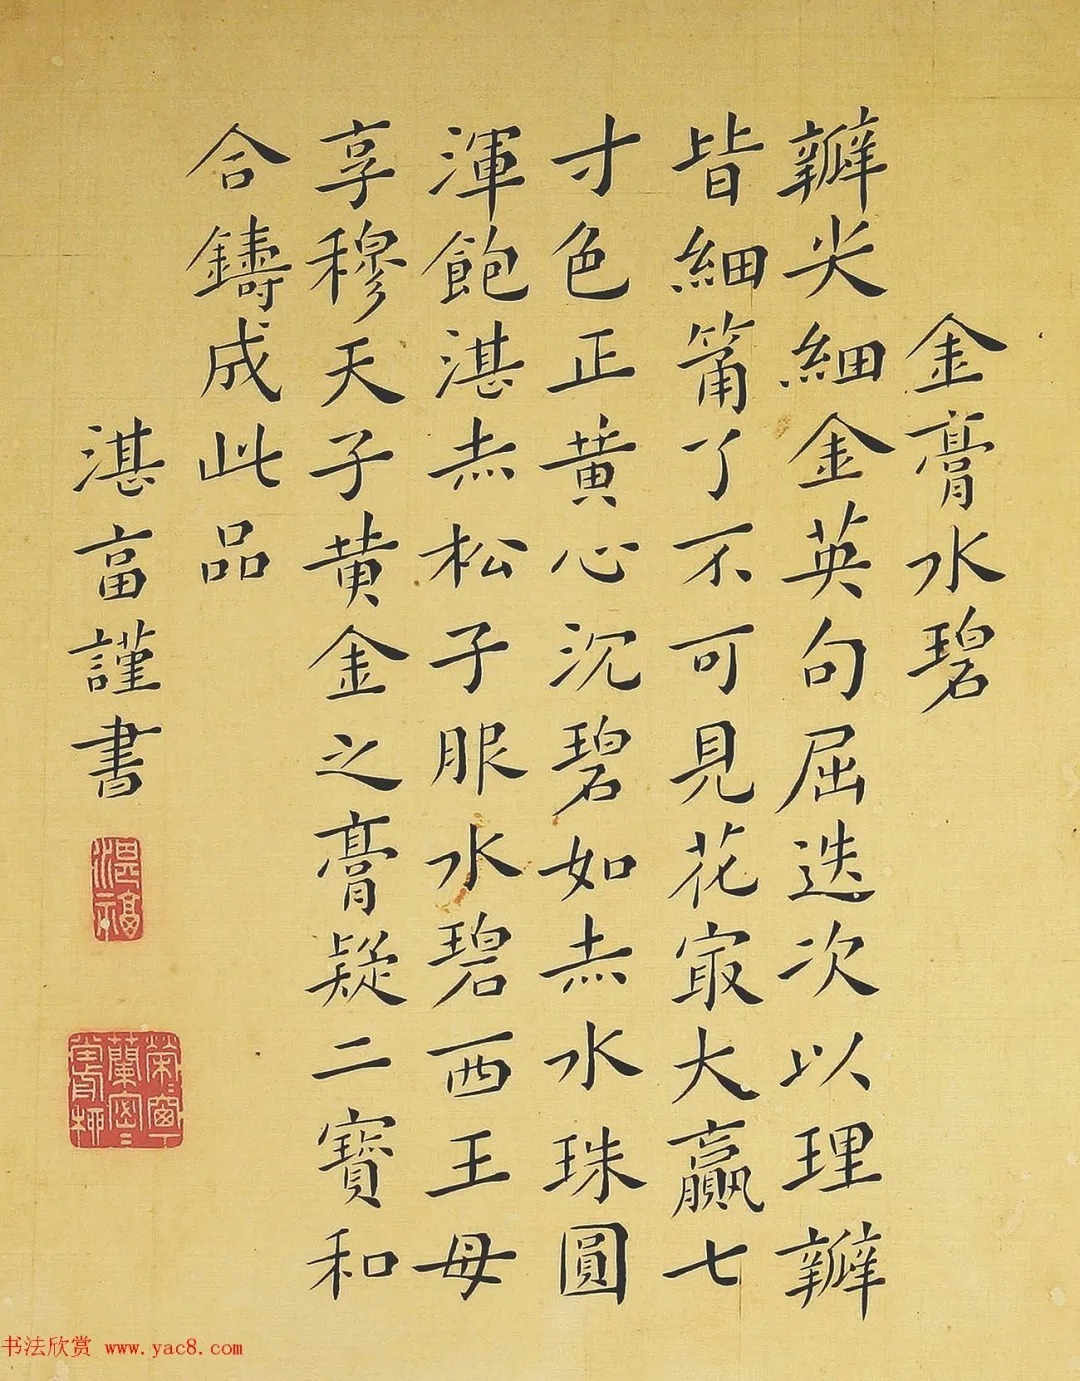 金膏水碧
瓣尖細金英句屈迭次以理瓣
皆細箾了不可見花冣大贏七
寸色正黃心沉碧如赤水珠圓
渾飽湛赤松子服水碧西王母
享穆天子黃金之膏疑二寶和
合鑄成此品
湛富謹書
湛福
书法欣赏 www.yac8.com